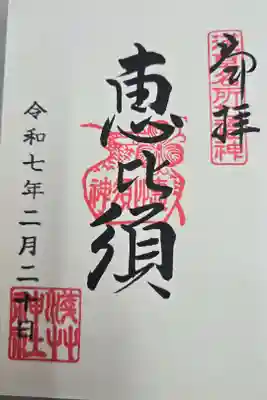 奉拝
恵比須
令和七年二月二十日
浅草神社